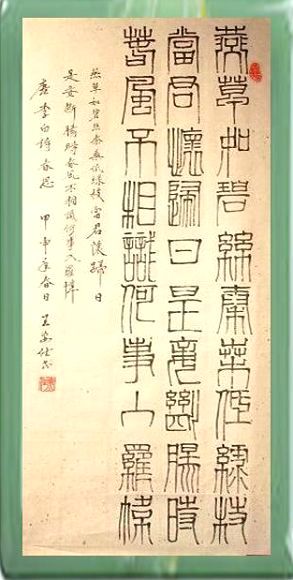 燕草如碧絲秦桑低綠枝
當君懷歸日是妾斷腸時
春風不相識何事入羅幃
燕草如碧絲秦桑低綠枝當君懷歸日
是妾斷腸時春風不相識何事入羅幃
唐李白詩春思 甲申年春日